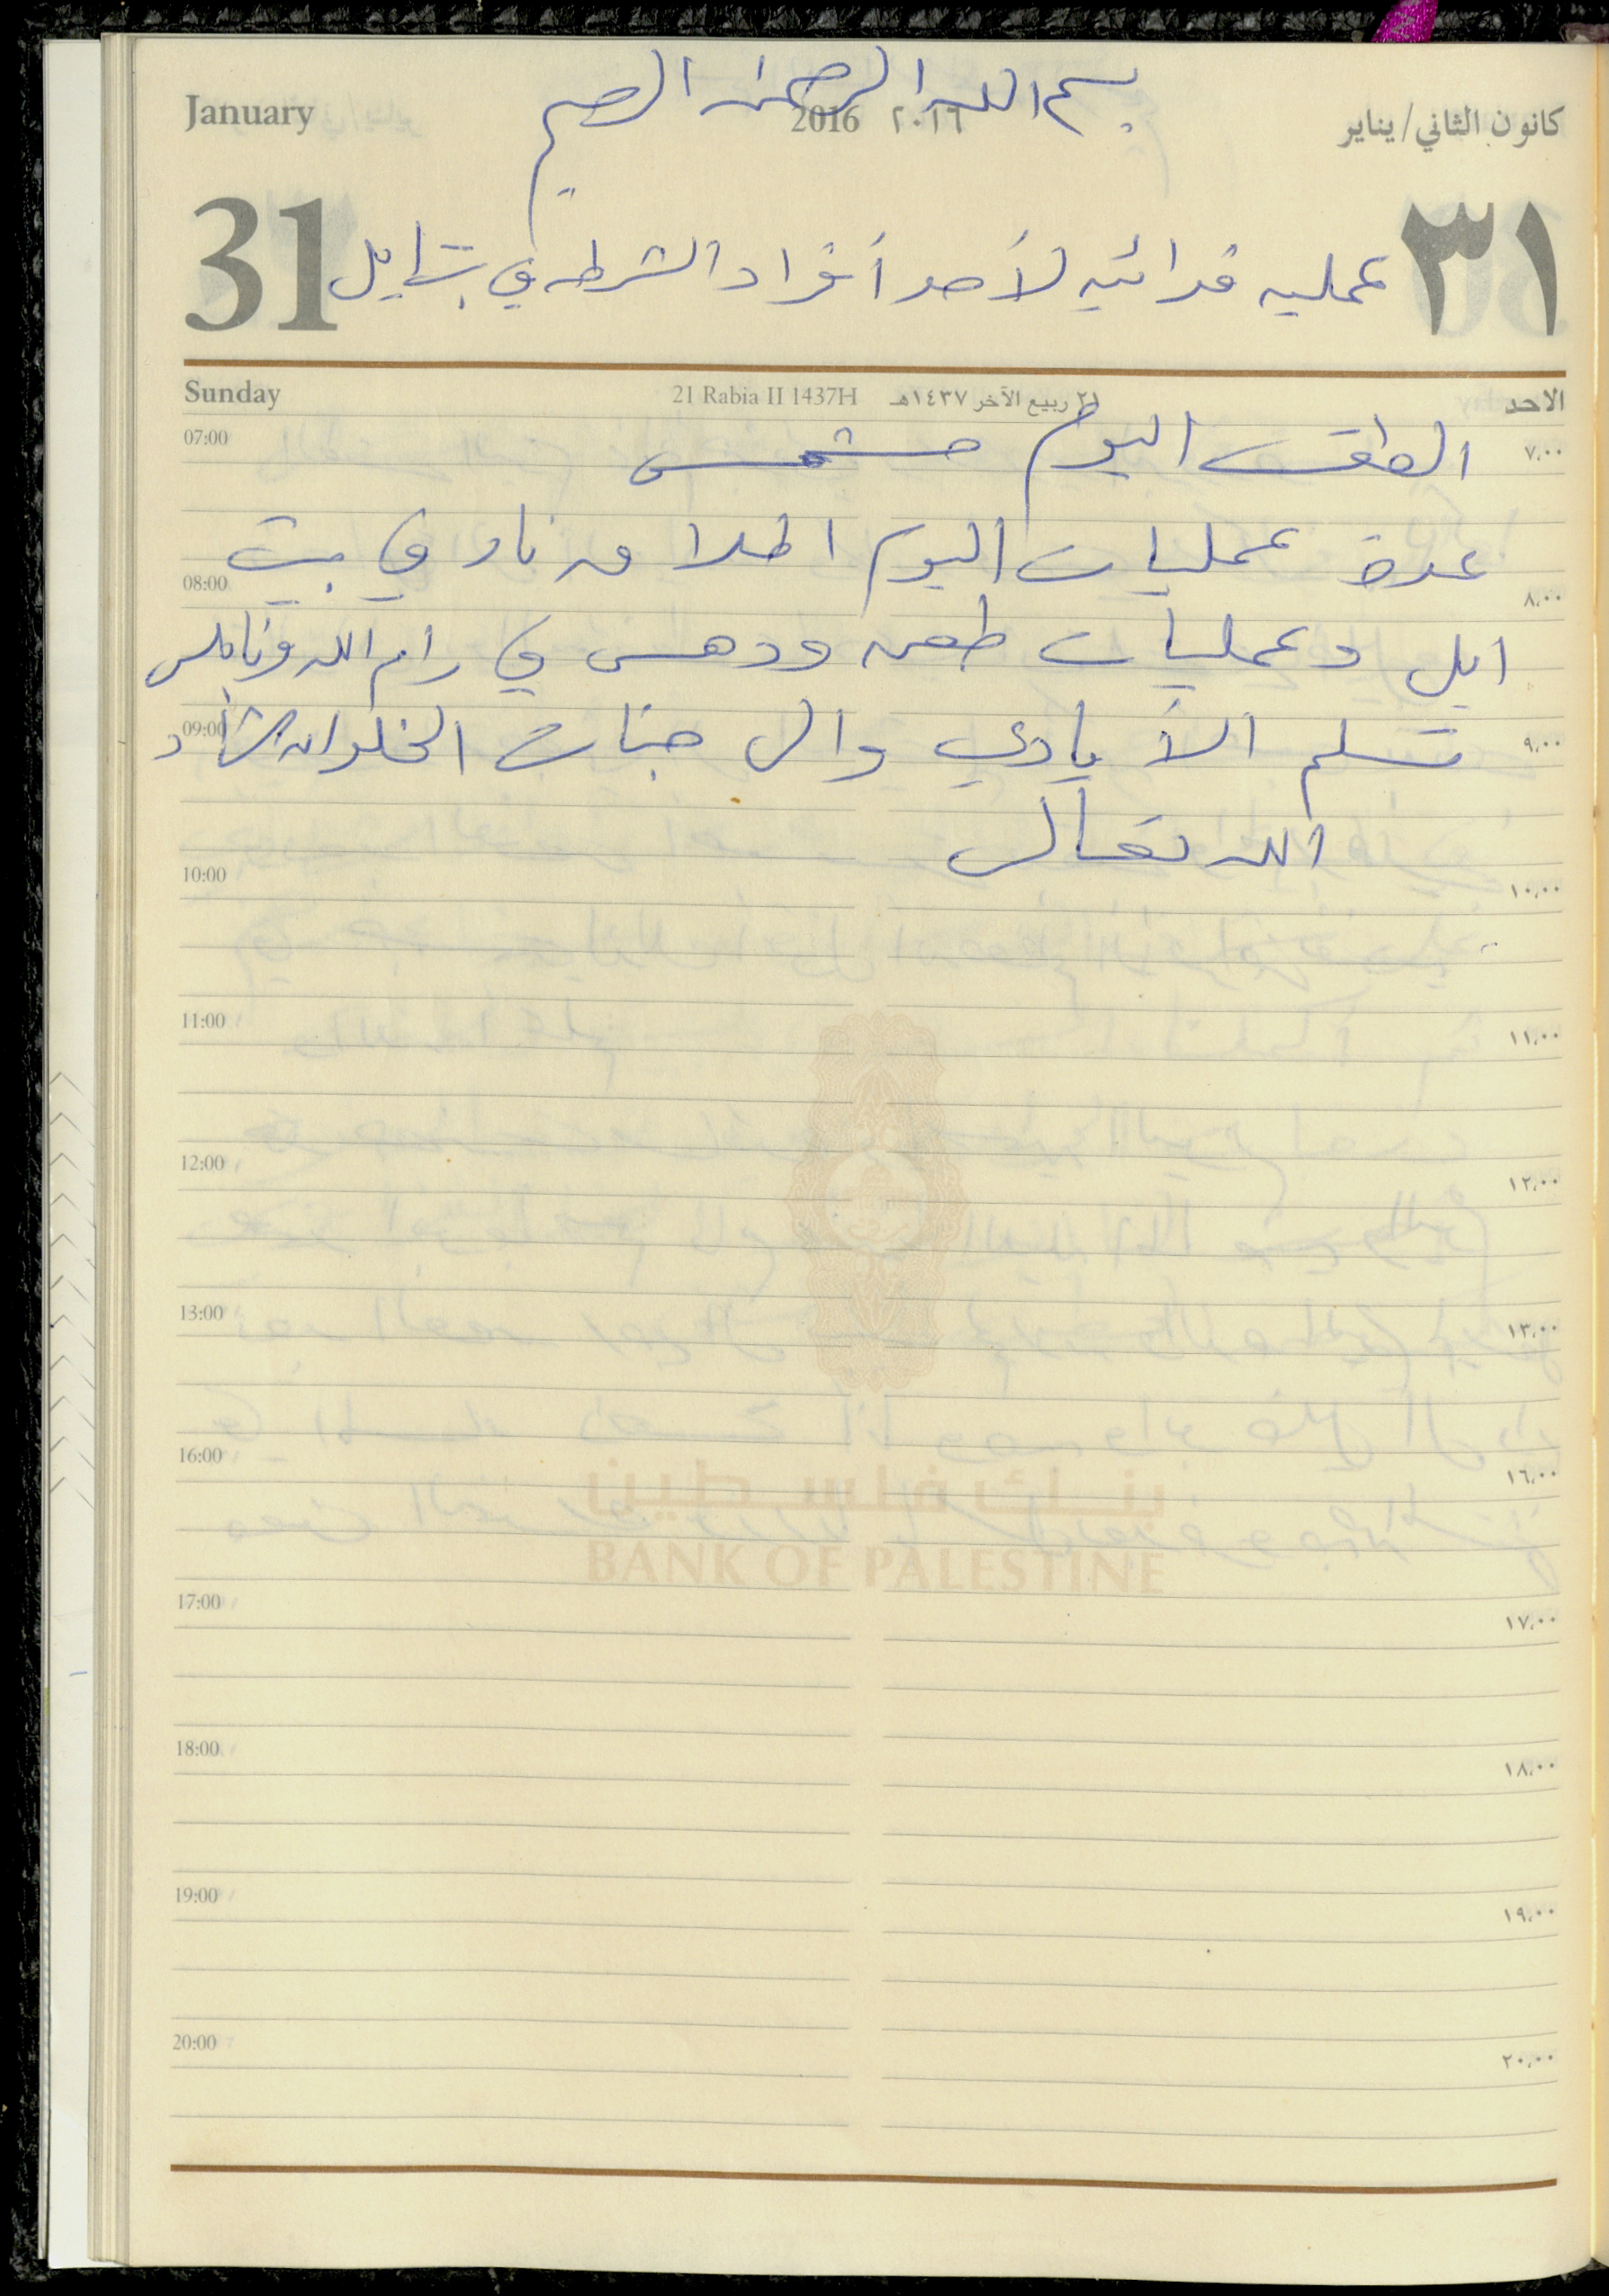 بسم الله الرحمن الرحيم
January 2016 ٢٠١٦ كانون الثاني/يناير
31 ٣١
عمليه فدائيه لأحد أفراد الشرطه في بيت ايل
Sunday 21 Rabia II 1437H ٢١ ربيع الآخر ١٤٣٧هـ الاحد
07:00 ٧,٠٠
الطقس اليوم مشمس
عدة عمليات اليوم اطلاق نار في بيت
08:00 ٨,٠٠
ايل وعمليات طعن ودهس في رام الله ونابلس
09:00 ٩,٠٠
تسلم الأيادي والى جنات الخلد ان شاء
الله تعالى
10:00 ١٠,٠٠
11:00 ١١,٠٠
12:00 ١٢,٠٠
13:00 ١٣,٠٠
16:00 ١٦,٠٠
بنك فلسطين
BANK OF PALESTINE
17:00 ١٧,٠٠
18:00 ١٨,٠٠
19:00 ١٩,٠٠
20:00 ٢٠,٠٠